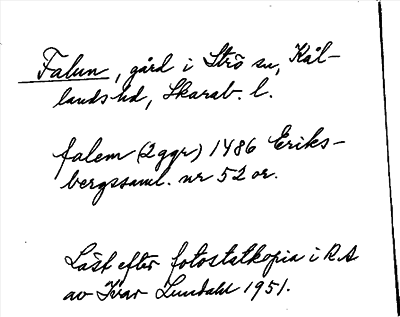 Falun, gård i Strö sn, Kål-
lands hd, Skarab. l.
falem (2 ggr) 1486 Eriks-
bergssaml. nr 52 or.
Läst efter fotostatkopia i RA
av Ivar Lundahl 1951.